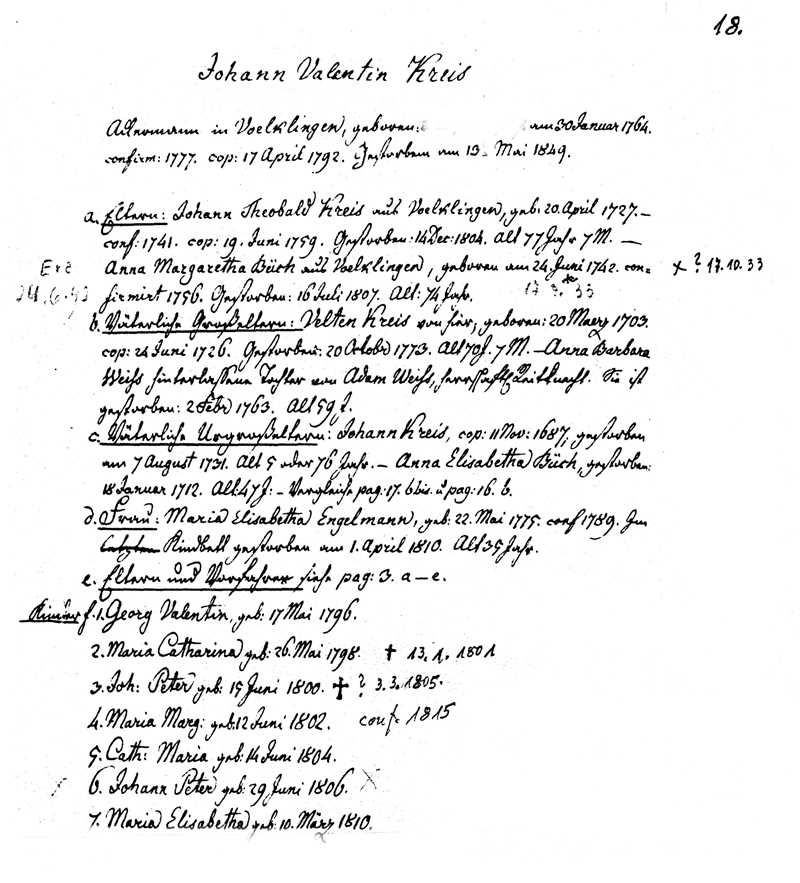 18.
Johann Valentin Kreis
Ackermann in Voelklingen, geboren: am 30 Januar 1764.
confirm: 1777. cop: 17 April 1792. Gestorben am 13. Mai 1849.
a. Eltern: Johann Theobald Kreis aus Voelklingen, geb. 20. April 1727. –
conf: 1741. cop: 19. Juni 1759. Gestorben: 14 Dec: 1804. Alt 77 Jahr 7 M. –
Anna Margaretha Büch aus Voelklingen, geboren am 24. Juni 1742. con= x ? 17.10.33
24.6.42 firmirt 1756. Gestorben: 16 Juli 1807. Alt: 74 Jahr. 33
b. Väterliche Großeltern: Velten Kreis von hier, geboren: 20 Maerz 1703.
cop: 24 Juni 1726. Gestorben: 20 Octobr 1773. Alt 70 J. 7 M. – Anna Barbara
Weihs hinterlassene Tochter von Adam Weihs, herrschaftl. Reitknecht. Sie ist
gestorben: 2 Febr 1763. Alt 59 J.
c. Väterliche Urgroßeltern: Johann Kreis, cop: 11 Nov: 1687, gestorben
am 7 August 1731. Alt 5 oder 76 Jahr. – Anna Elisabetha Büch, gestorben:
18 Januar 1712. Alt: 47 J: – Vergleiche pag: 17. b bis. u pag: 16. b.
d. Frau: Maria Elisabetha Engelmann, geb: 22. Mai 1775. conf 1789. Im
letzten Kindbett gestorben am 1. April 1810. Alt 35 Jahr.
e. Eltern und Vorfahren siehe pag: 3. a – e.
Kinder f. 1. Georg Valentin, geb: 17 Mai 1796.
2. Maria Catharina geb: 26. Mai 1798. † 13. 1. 1801
3. Joh: Peter geb: 15 Juni 1800. † ? 3.3.1805.
4. Maria Marg: geb: 12 Juni 1802. conf. 1815
5. Cath: Maria geb: 14 Juni 1804.
6. Johann Peter geb: 29 Juni 1806.
7. Maria Elisabetha geb: 10. März 1810.